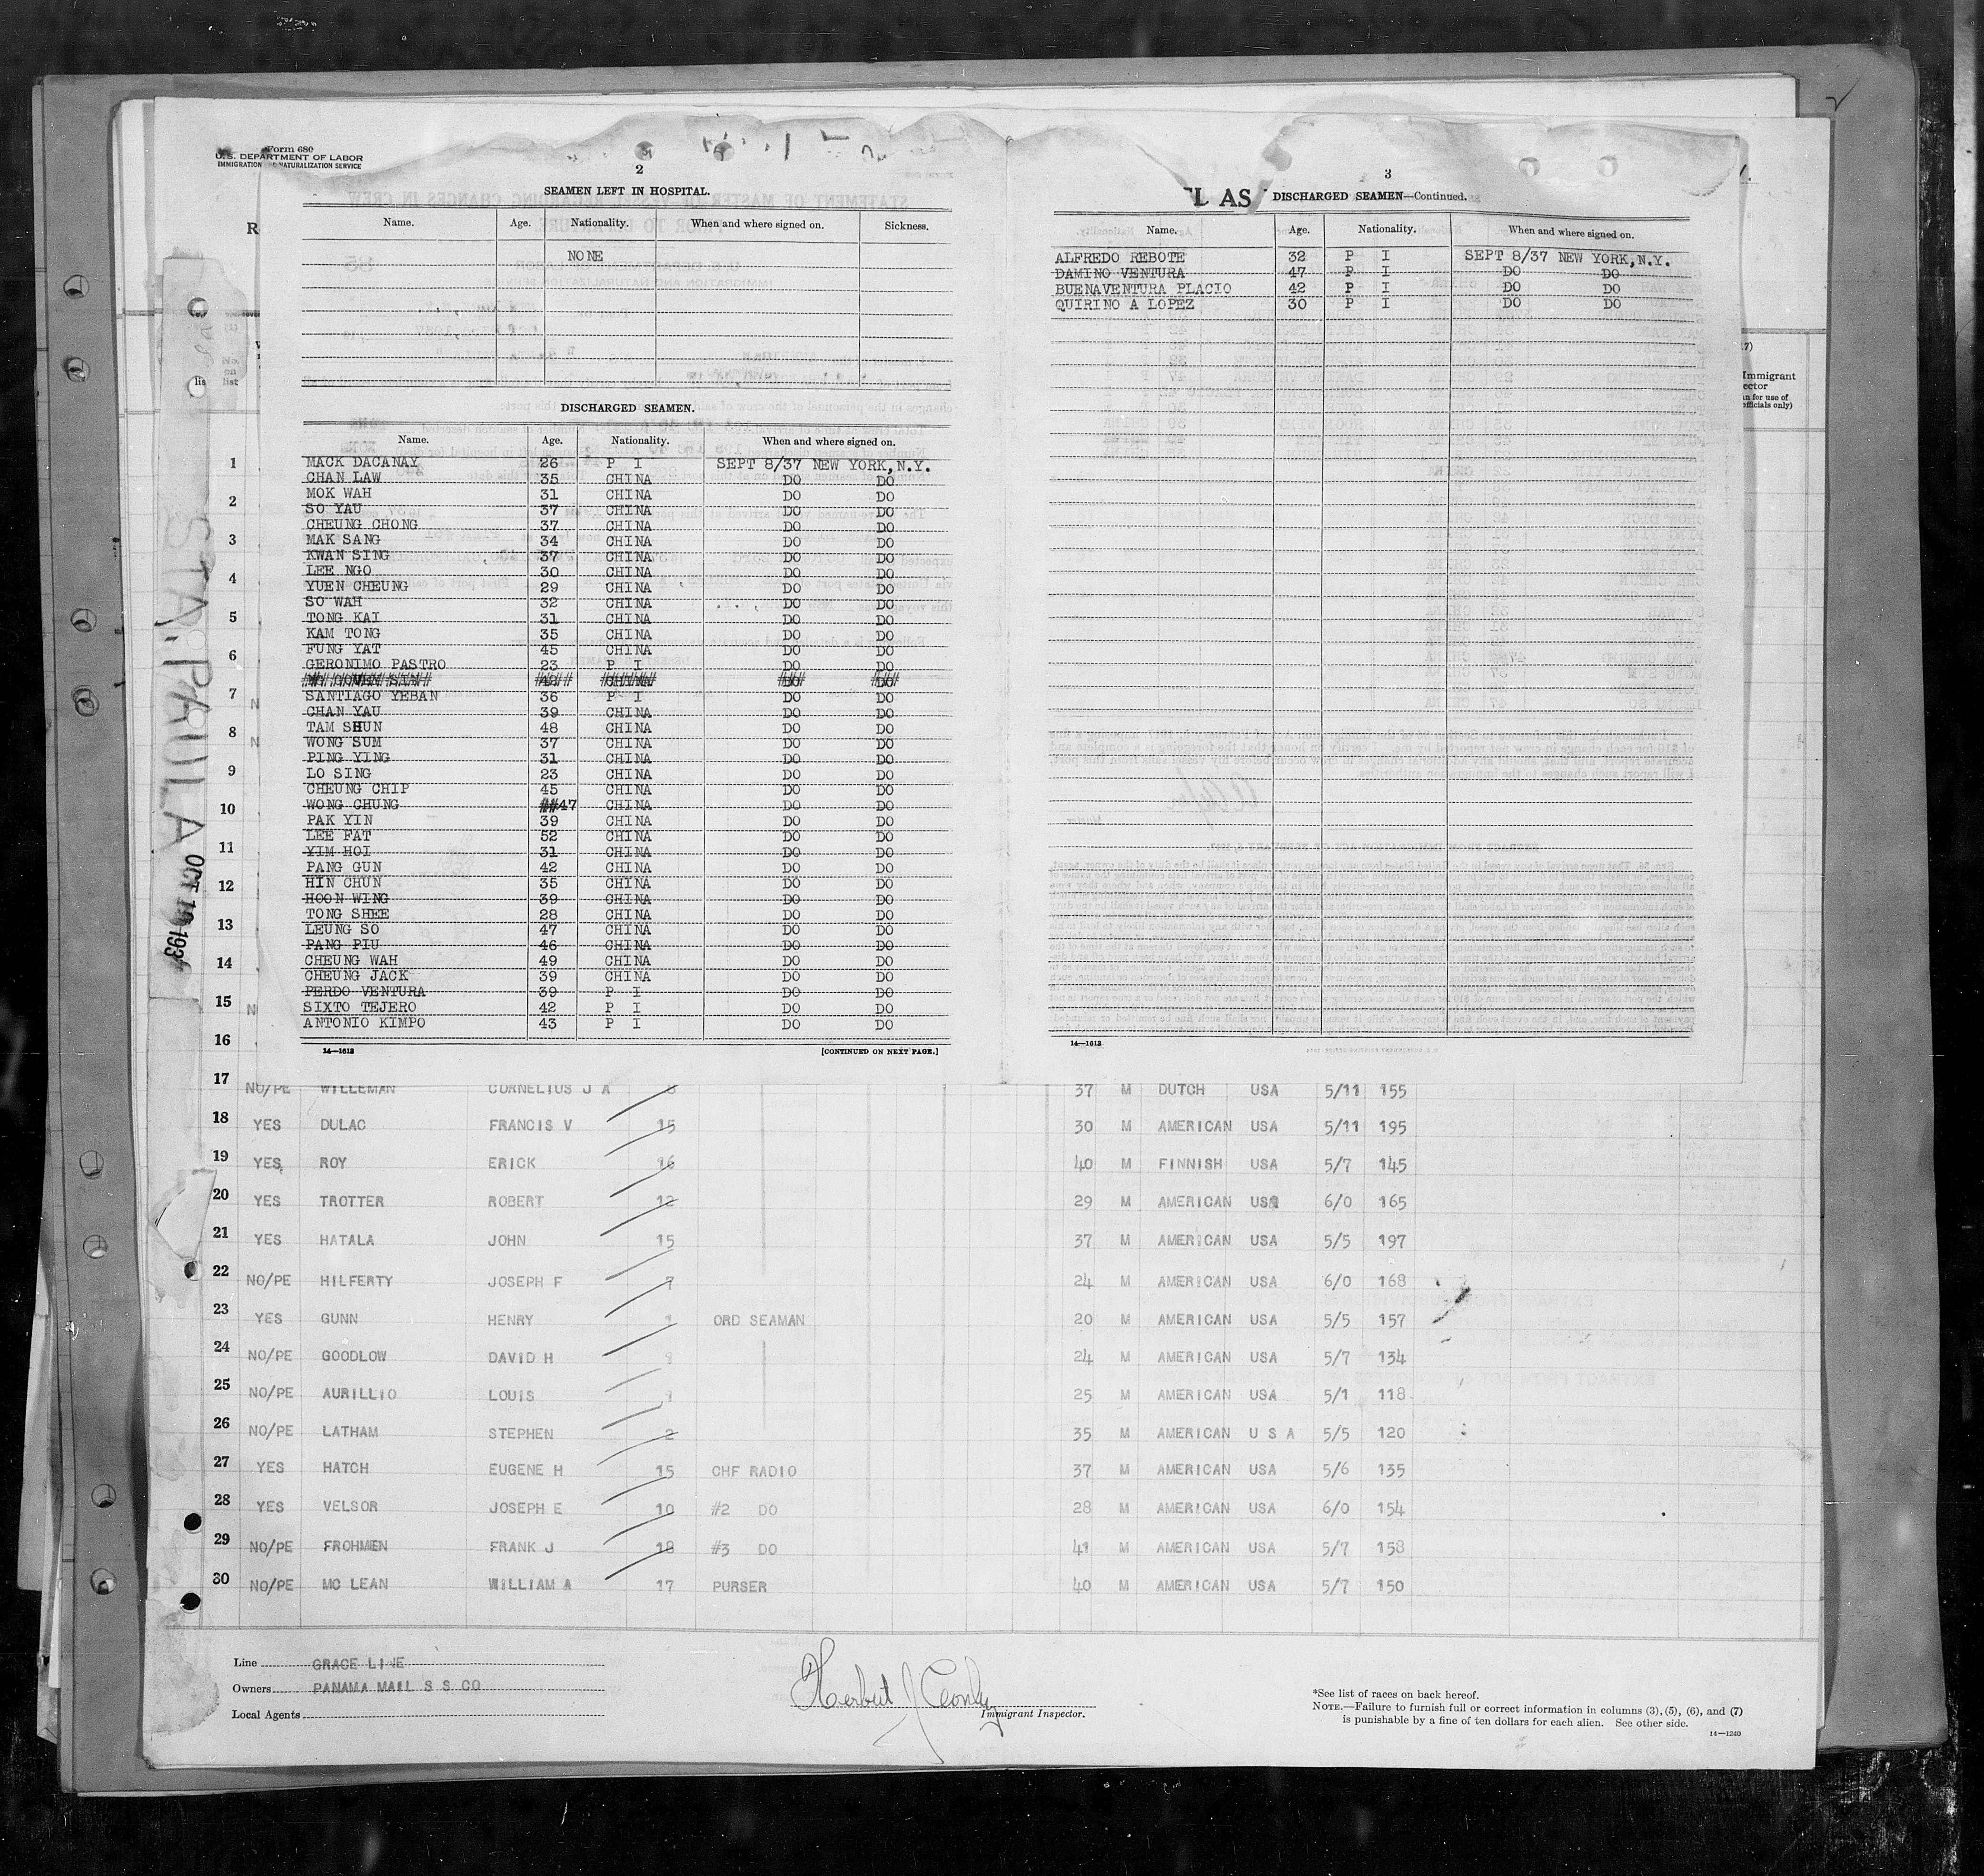 Form 680
U.S. DEPARTMENT OF LABOR
IMMIGRATION NATURALIZATION SERVICE
2
SEAMEN LEFT IN HOSPITAL.
Name. Age. Nationality. When and where signed on. Sickness.
NONE
DISCHARGED SEAMEN.
Name. Age. Nationality. When and where signed on.
MACK DACANAY 26 P I SEPT 8/37 NEW YORK,N.Y.
CHAN LAW 35 CHINA DO DO
MOK WAH 31 CHINA DO DO
SO YAU 37 CHINA DO DO
CHEUNG CHONG 37 CHINA DO DO
MAK SANG 34 CHINA DO DO
KWAN SING 37 CHINA DO DO
LEE NGO 30 CHINA DO DO
YUEN CHEUNG 29 CHINA DO DO
SO WAH 32 CHINA DO DO
TONG KAI 31 CHINA DO DO
KAM TONG 35 CHINA DO DO
FUNG YAT 45 CHINA DO DO
GERONIMO PASTRO 23 P I DO DO
SANTIAGO YEBAN 36 P I DO DO
CHAN YAU 39 CHINA DO DO
TAM SHUN 48 CHINA DO DO
WONG SUM 37 CHINA DO DO
PING YING 31 CHINA DO DO
LO SING 23 CHINA DO DO
CHEUNG CHIP 45 CHINA DO DO
WONG CHUNG ##47 CHINA DO DO
PAK YIN 39 CHINA DO DO
LEE FAT 52 CHINA DO DO
YIM HOI 31 CHINA DO DO
PANG GUN 42 CHINA DO DO
HIN CHUN 35 CHINA DO DO
HOON WING 39 CHINA DO DO
TONG SHEE 28 CHINA DO DO
LEUNG SO 47 CHINA DO DO
PANG PIU 46 CHINA DO DO
CHEUNG WAH 49 CHINA DO DO
CHEUNG JACK 39 CHINA DO DO
PERDO VENTURA 39 P I DO DO
SIXTO TEJERO 42 P I DO DO
ANTONIO KIMPO 43 P I DO DO
14—1613 [CONTINUED ON NEXT PAGE.]
3
L AS DISCHARGED SEAMEN—Continued.
Name. Age. Nationality. When and where signed on.
ALFREDO REBOTE 32 P I SEPT 8/37 NEW YORK,N.Y.
DAMINO VENTURA 47 P I DO DO
BUENAVENTURA PLACIO 42 P I DO DO
QUIRINO A LOPEZ 30 P I DO DO
14—1613
Immigrant
ector
n for use of
officials only)
No.
on
list
STA. PAULA
OCT 19 193
1
2
3
4
5
6
7
8
9
10
11
12
13
14
15
16
17 NO/PE WILLEMAN CORNELIUS J A 37 M DUTCH USA 5/11 155
18 YES DULAC FRANCIS V 15 30 M AMERICAN USA 5/11 195
19 YES ROY ERICK 16 40 M FINNISH USA 5/7 145
20 YES TROTTER ROBERT 12 29 M AMERICAN USA 6/0 165
21 YES HATALA JOHN 15 37 M AMERICAN USA 5/5 197
22 NO/PE HILFERTY JOSEPH F 7 24 M AMERICAN USA 6/0 168
23 YES GUNN HENRY 1 ORD SEAMAN 20 M AMERICAN USA 5/5 157
24 NO/PE GOODLOW DAVID H 24 M AMERICAN USA 5/7 134
25 NO/PE AURILLIO LOUIS 25 M AMERICAN USA 5/1 118
26 NO/PE LATHAM STEPHEN 2 35 M AMERICAN U S A 5/5 120
27 YES HATCH EUGENE H 15 CHF RADIO 37 M AMERICAN USA 5/6 135
28 YES VELSOR JOSEPH E 10 #2 DO 28 M AMERICAN USA 6/0 154
29 NO/PE FROHMEN FRANK J 18 #3 DO 41 M AMERICAN USA 5/7 158
30 NO/PE MC LEAN WILLIAM A 17 PURSER 40 M AMERICAN USA 5/7 150
Line GRACE LINE
Owners PANAMA MAIL S S CO
Local Agents
Immigrant Inspector.
*See list of races on back hereof.
NOTE.—Failure to furnish full or correct information in columns (3), (5), (6), and (7)
is punishable by a fine of ten dollars for each alien. See other side.
14—1240